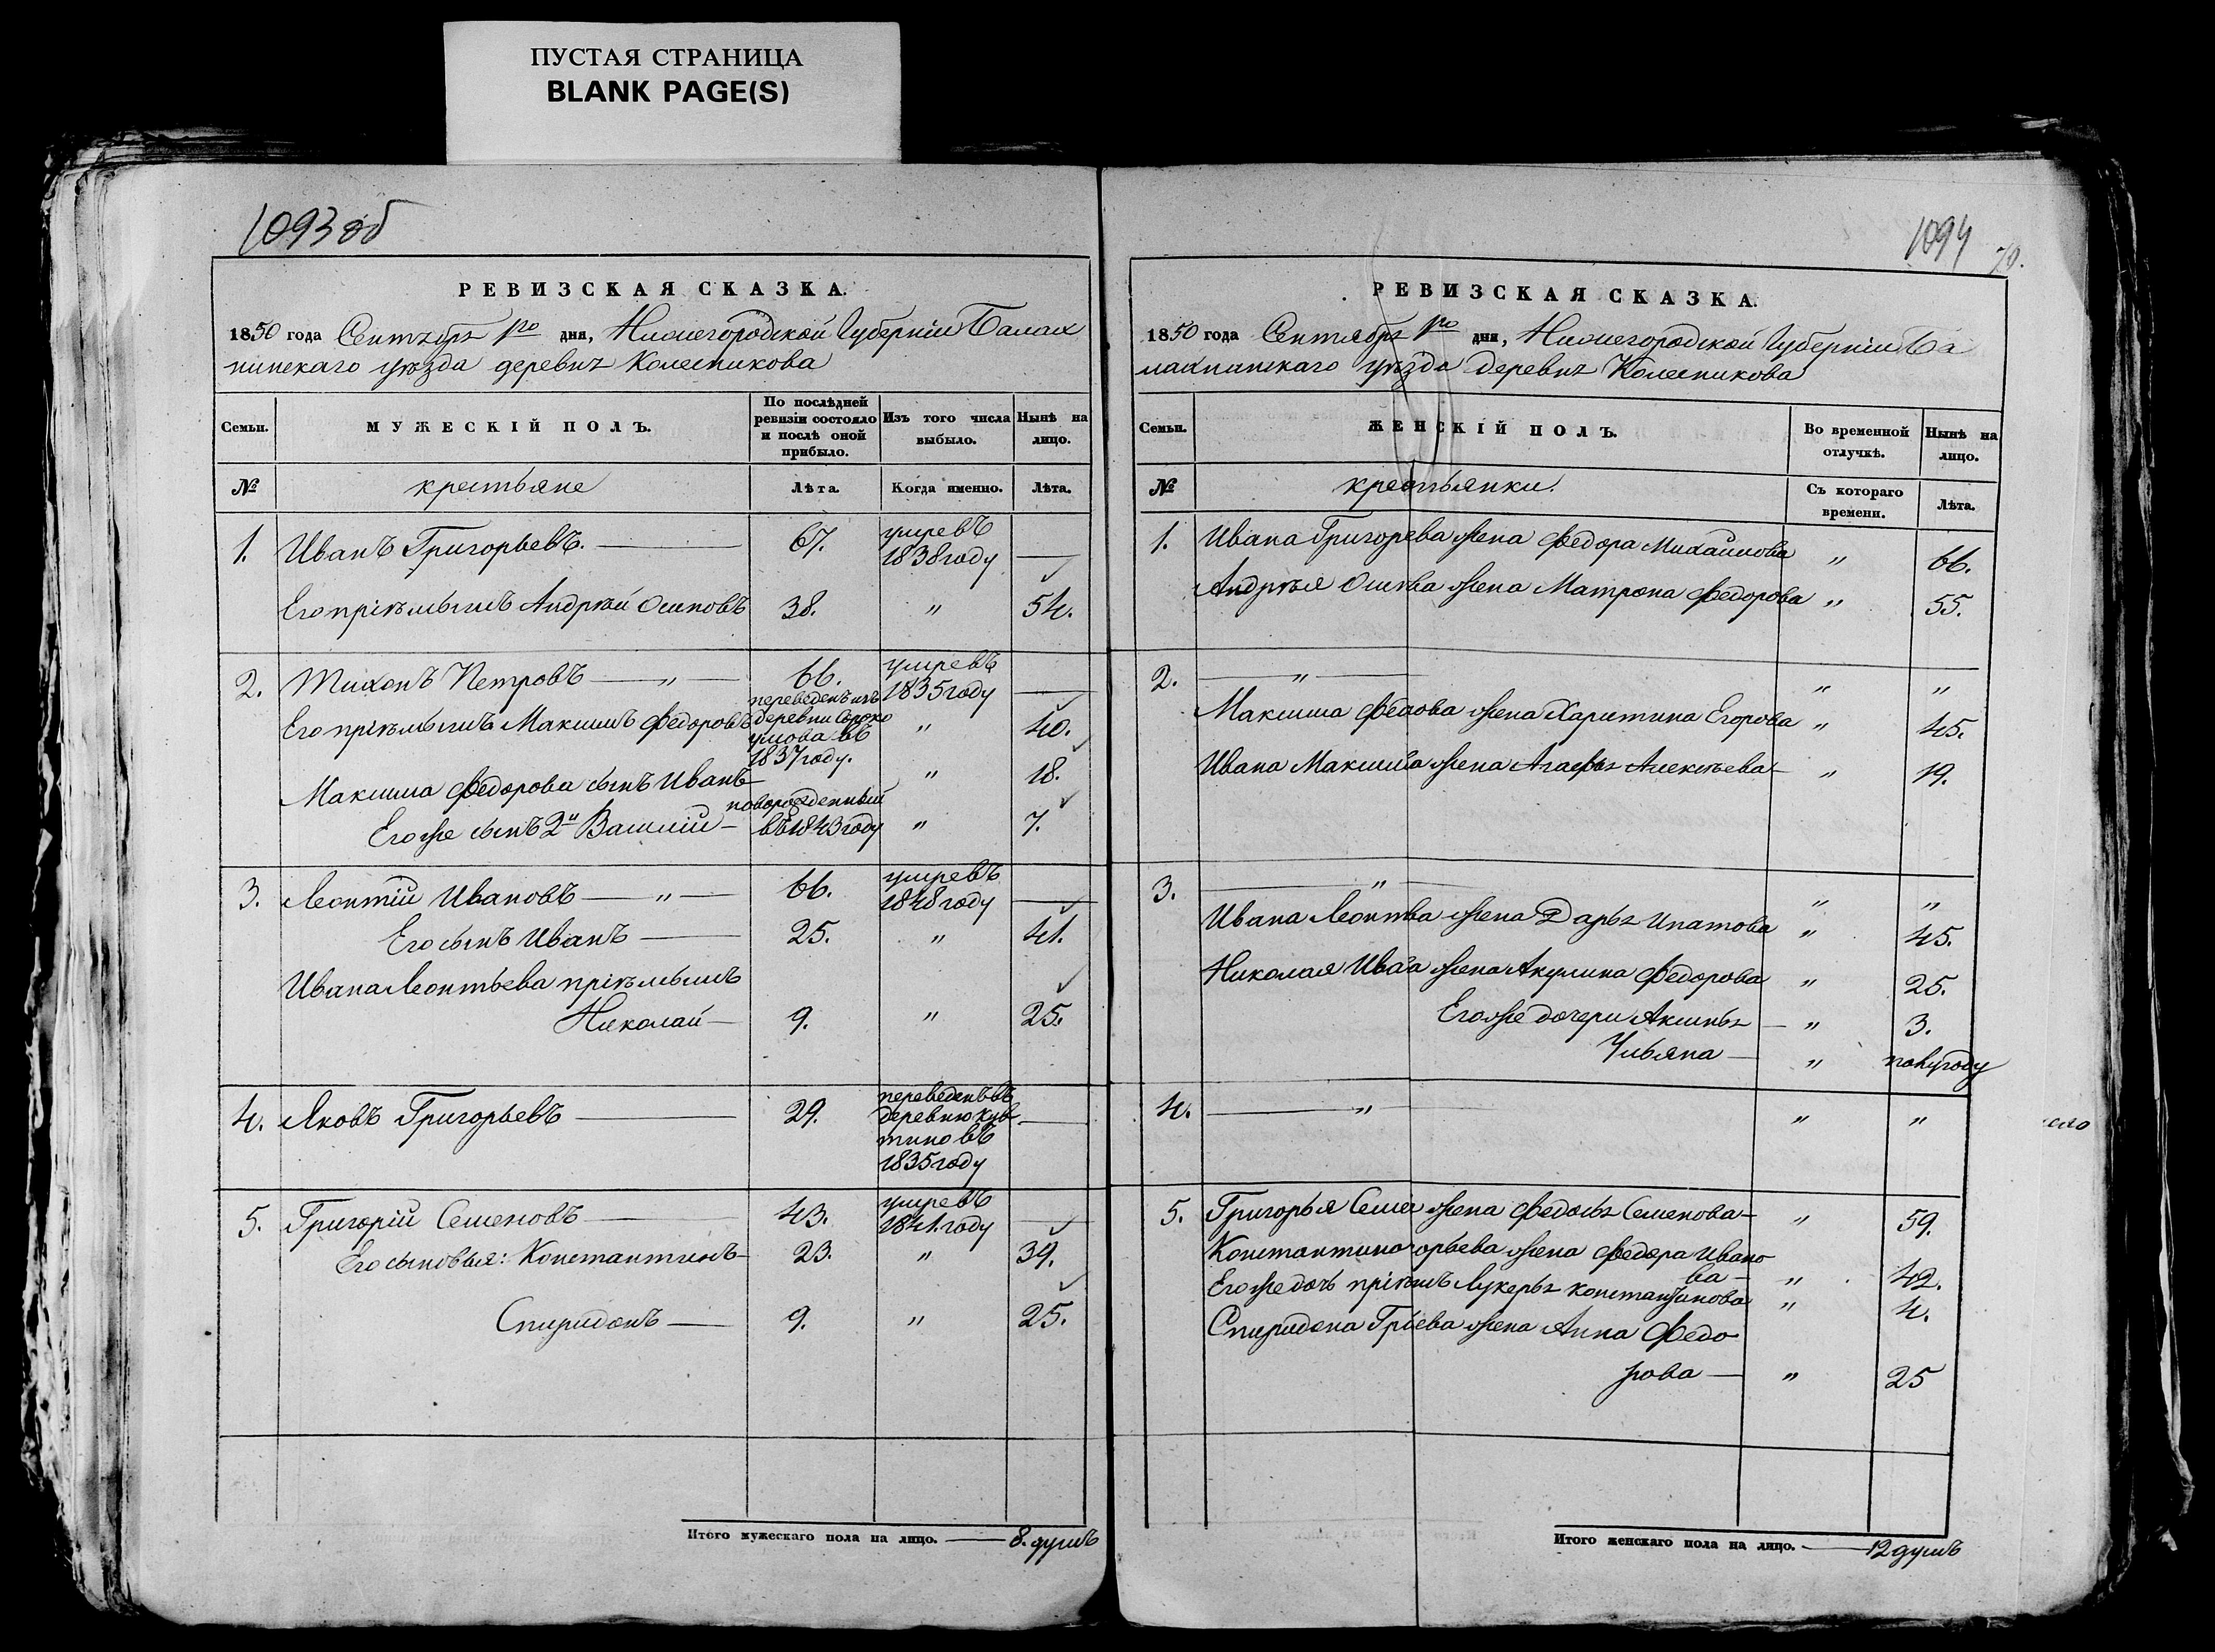 ПУСТАЯ СТРАНИЦА
BLANK PAGE(S)
1093 об
РЕВИЗСКАЯ СКАЗКА.
1850 года Сентября 1го дня, Нижегородской Губерніи Балах
нинскаго уѣзда деревни Колесникова
Семьи. МУЖЕСКІЙ ПОЛЪ. По послѣдней ревизіи состояло и послѣ оной прибыло. Изъ того числа выбыло. Нынѣ на лицо.
№ крестьяне Лѣта. Когда именно. Лѣта.
1. Иванъ Григорьевъ. 67. умревъ 1838 году —
Его пріемышъ Андрѣй Осиповъ 38. " 54.
2. Тихонъ Петровъ — " — 66. умревъ 1835 году —
Его пріемышъ Максимъ Федоровъ переведенъ изъ деревни Сороко умова въ 1837 году. " 40.
Максима Федорова сынъ Иванъ " 18.
Его же сынъ 2й Василій — новорожденный въ 1843 году " 7.
3. Леонтій Ивановъ — " — 66. умревъ 1848 году —
Его сынъ Иванъ — 25. " 41.
Ивана Леонтьева пріемышъ
Николай — 9. " 25.
4. Яковъ Григорьевъ — 29. переведенъ въ деревню в 1835 году —
5. Григорій Семеновъ — 43. умревъ 1841. году —
Его сыновья: Константинъ — 23. " 39.
Спиридонъ — 9. " 25.
Итого мужескаго пола на лицо. — 8. душъ
1094
70.
РЕВИЗСКАЯ СКАЗКА.
1850 года Сентября 1го дня, Нижегородской Губерніи Ба
лахнинскаго уѣзда деревни Колесникова
Семьи. ЖЕНСКІЙ ПОЛЪ. Во временной отлучкѣ. Нынѣ на лицо.
№ крестьянки. Съ котораго времени. Лѣта.
1. Ивана Григорева жена Федора Михайлова " 66.
Андрѣя Осипва жена Матрона Федорова " 55.
2. — " — " "
Максима Федова жена Харитина Егорова " 45.
Ивана Максима жена Агафья Алексѣева — " 19.
3. — " — " "
Ивана Леонтва жена Дарья Ипатова " 45.
Николая Ива'а жена Акулина Федорова " 25.
Его же дочери Аксинья — " 3.
Ульяна — " полугоду
4. — " — " "
5. Григорья Семе жена Федосья Семенова — " 59.
жена Федора Ивано
ва — " 42.
Его же дочь пріемышъ Лукерья Константинова " 4.
Спиридона Гр'ьева жена Анна Федо
рова — " 25
Итого женскаго пола на лицо. — 12 душъ